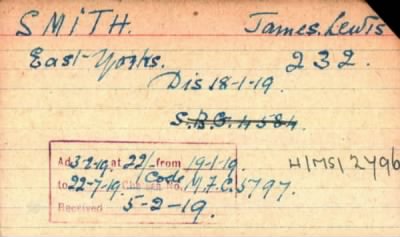 SMITH. James. Lewis
East Yorks. 232.
Dis 18-1-19.
S.B.G. 4584.
Ad 3-2-19. at 22/- from 19-1-19. H/MS/2796
to 22-7-19. Code No. M.F.C. 5797.
Received 5-2-19.